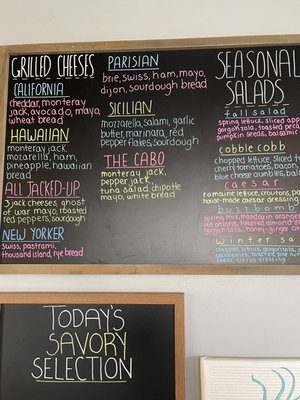 GRILLED CHEESES
CALIFORNIA
cheddar, monterey
jack, avocado, mayo,
wheat bread
HAWAIIAN
monterey jack,
mozarella, ham,
pineapple, hawaiian
bread
ALL JACKED-UP
3 jack cheeses ghost
of war mayo, roasted
red peppers, sourdough
NEW YORKER
swiss, pastrami,
thousand island, rye bread
PARISIAN
brie, swiss, ham, mayo,
dijon, sourdough bread
SICILIAN
mozzarella, salami, garlic
butter, marinara, red
pepper flakes, sourdough
THE CABO
monterey jack,
pepper jack,
tuna salad, chipotle
mayo, white bread
SEASONAL
SALADS
fall salad
spring lettuce, sliced
gorgonzola, toasted
pumpkin seeds, balsamic
cobble cobb
chopped lettuce, sliced
cherry tomatoes, bacon,
blue cheese crumbles,
caesar
romaine lettuce, croutons,
house-made caesar dressing
spring mix, mandarin
gorgonzola, toasted
gorgonzola, honey-ginger
winter sa
chopped lettuce,
cranberries, toasted pine nut
seeds, citrus dressing
TODAY'S
SAVORY
SELECTION